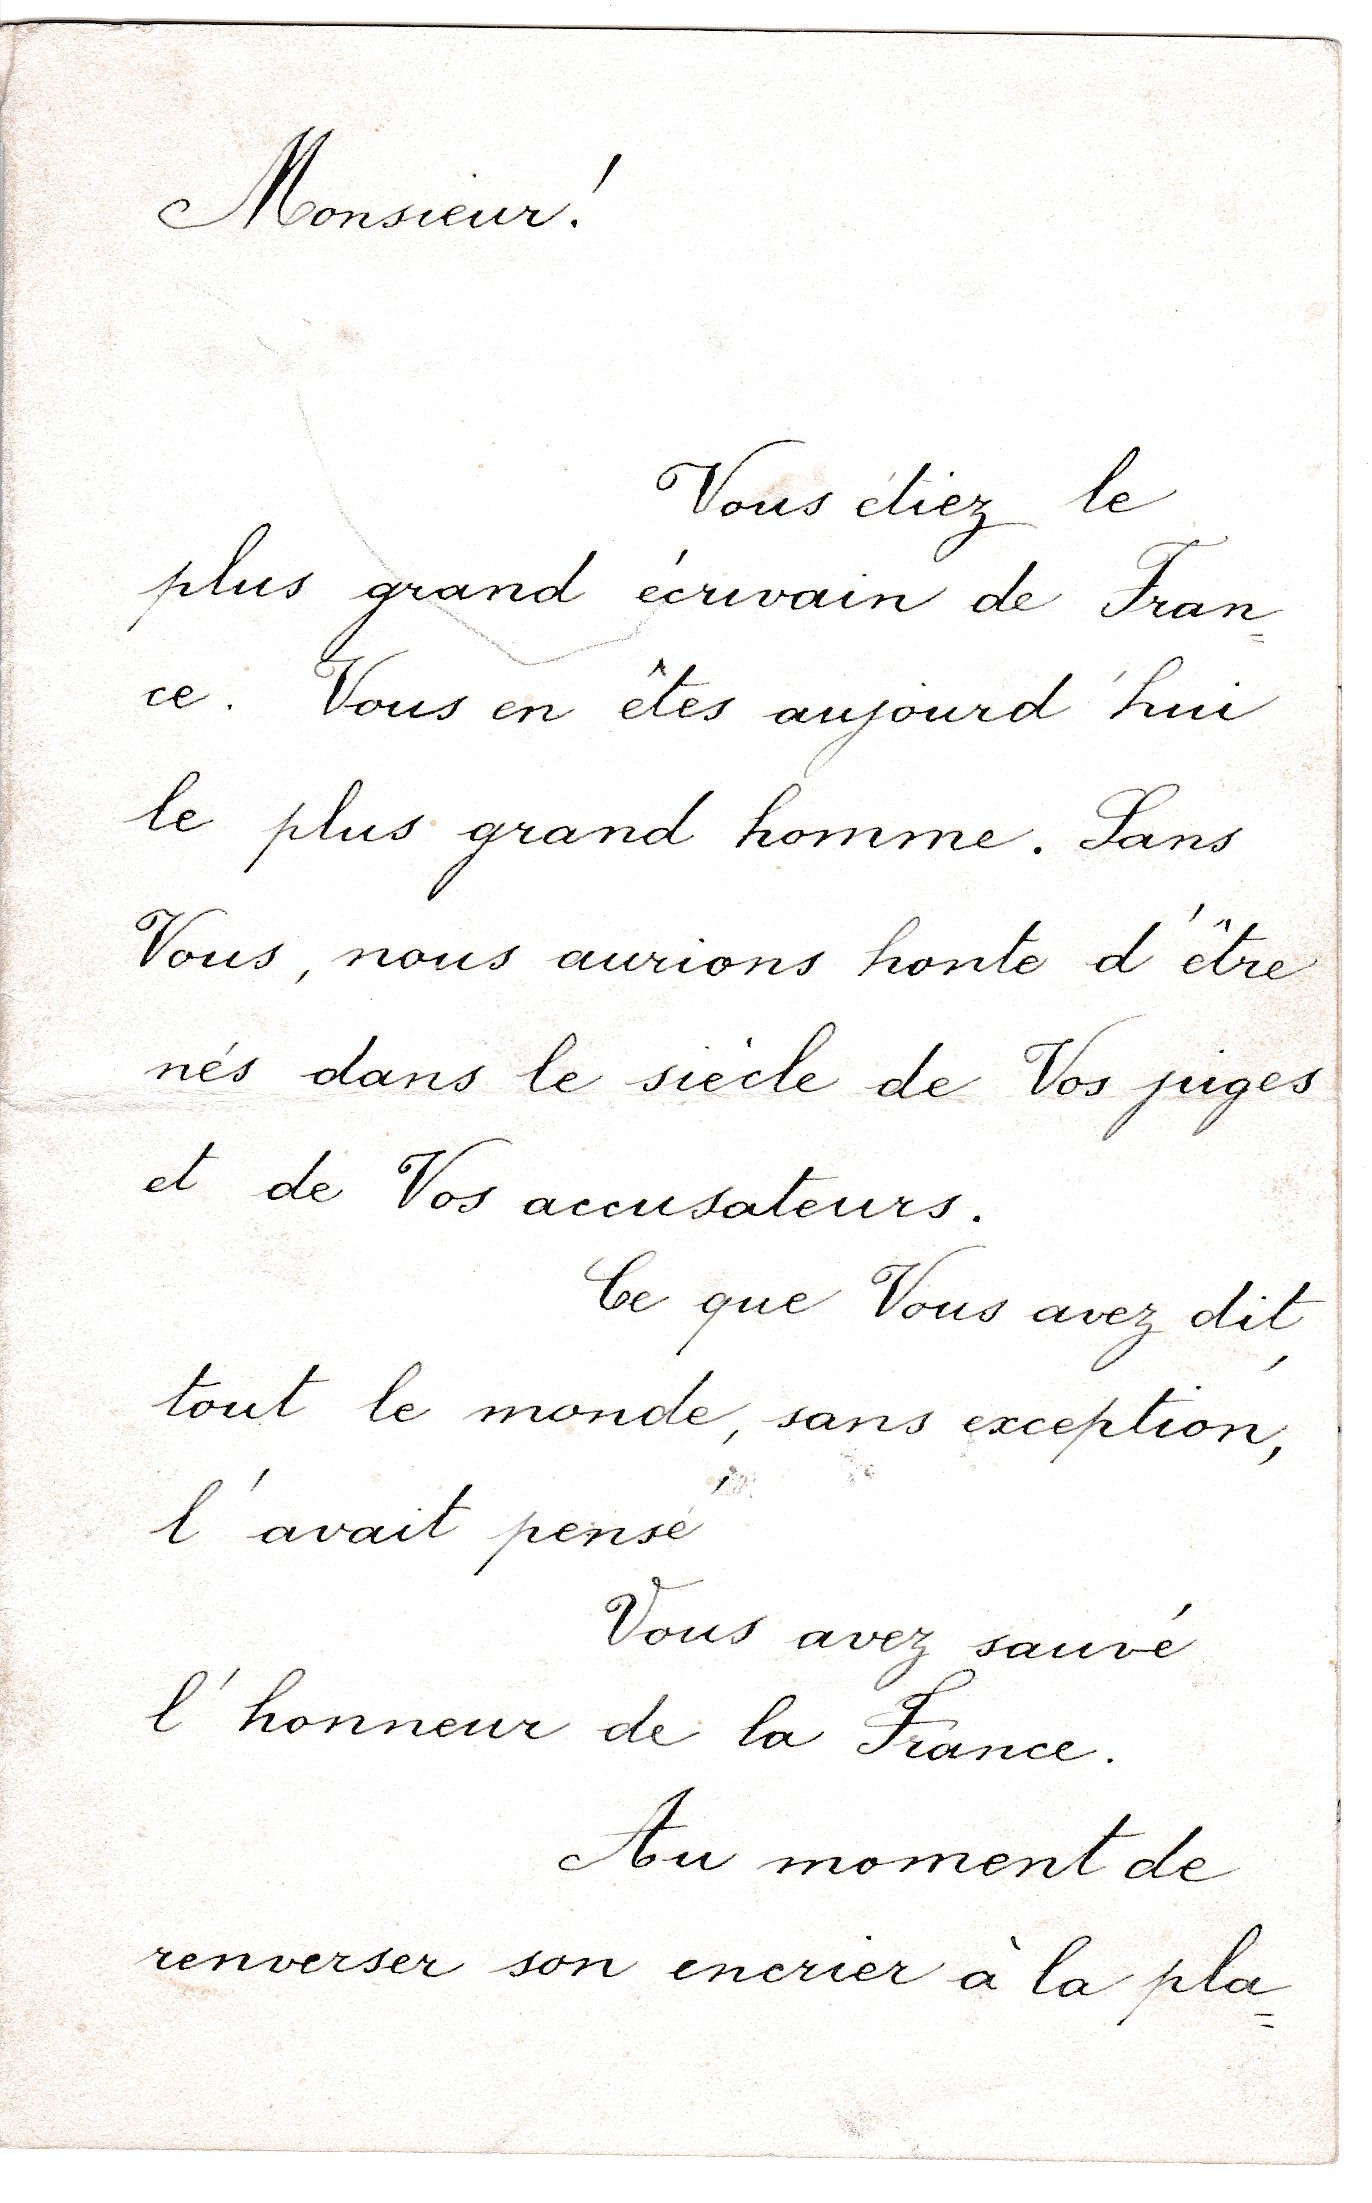 Monsieur!
Vous étiez le
plus grand écrivain de Fran=
ce. Vous en êtes aujourd'hui
le plus grand homme. Sans
Vous, nous aurions honte d'être
nés dans le siècle de Vos juges
et de Vos accusateurs.
Ce que Vous avez dit,
tout le monde, sans exception,
l'avait pensé
Vous avez sauvé
l'honneur de la France.
Au moment de
renverser son encrier à la pla=